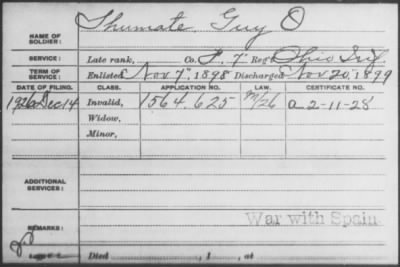 NAME OF SOLDIER: Shumate Guy O
SERVICE: Late rank, Co. 7" Reg't Ohio Inf.
TERM OF SERVICE: Enlisted Nov 7", 1898 Discharged Nov 20, 1899
DATE OF FILING. CLASS. APPLICATION NO. LAW. CERTIFICATE NO.
1926 Dec 14 Invalid, 1564.625 2-11-28
Widow,
Minor,
ADDITIONAL SERVICES:
War with Spain
REMARKS:
Died , 1 , at